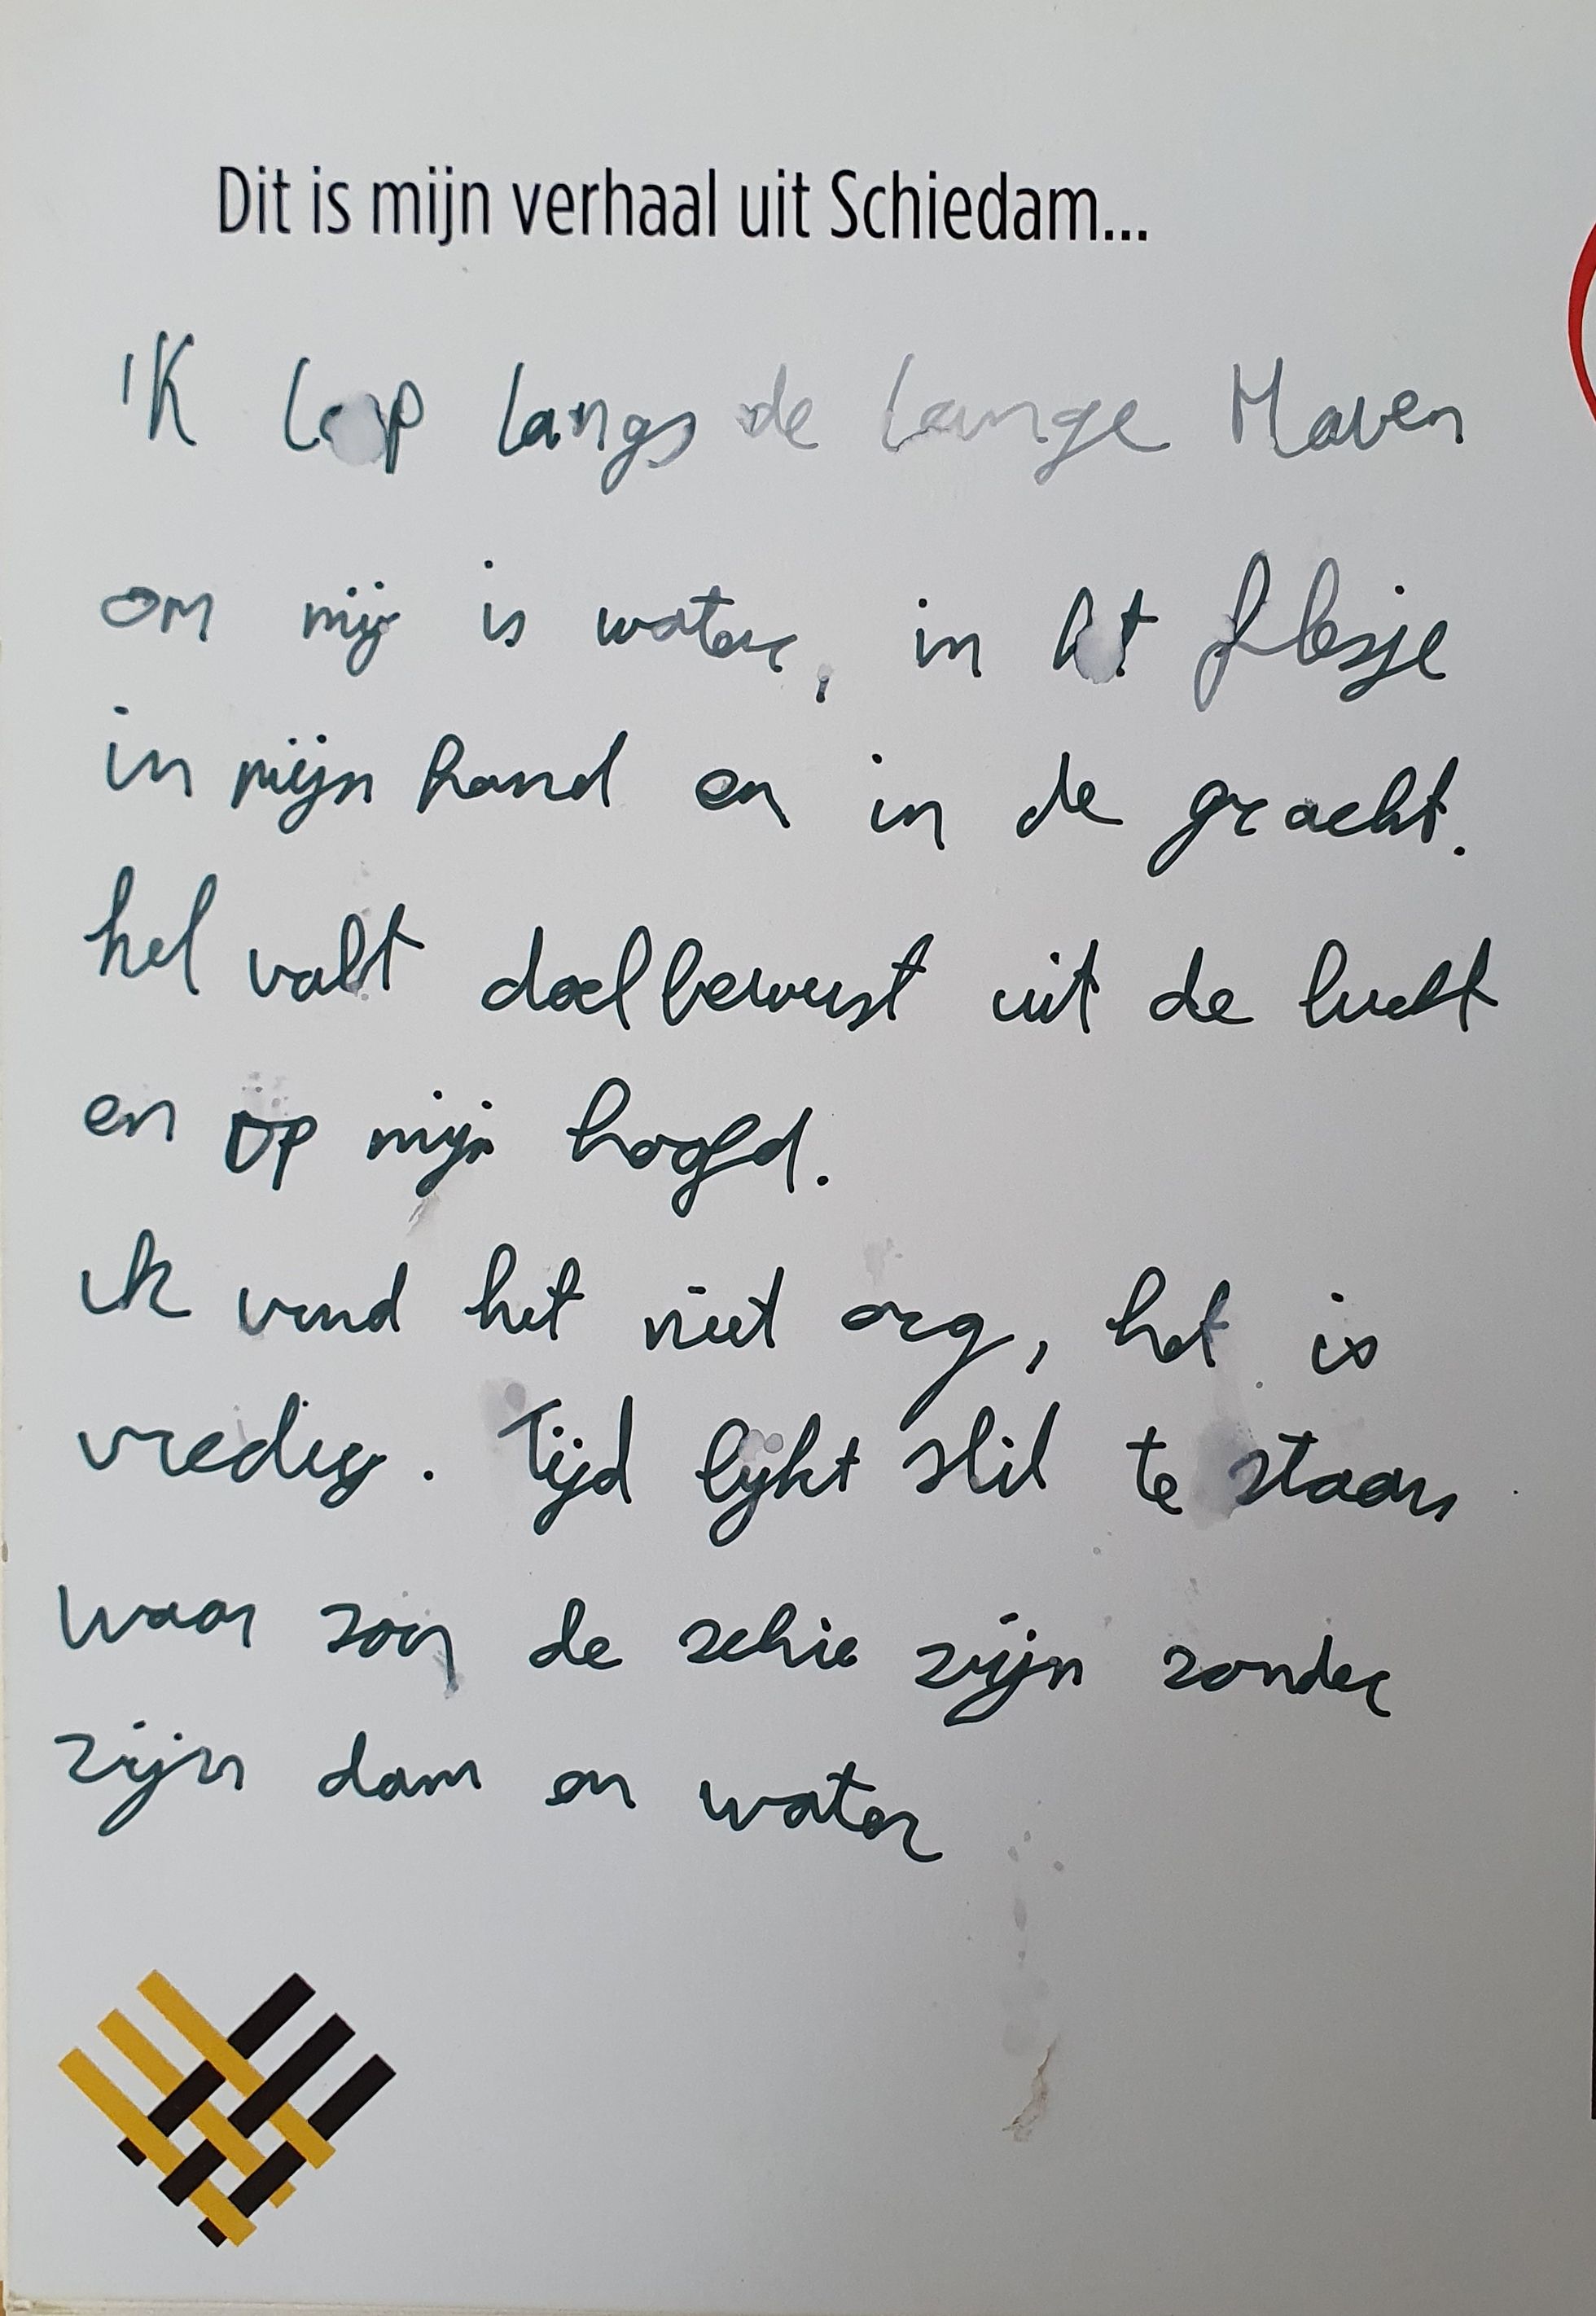 Dit is mijn verhaal uit Schiedam...
ik loop langs de lange Haven
om mij is water, in het flesje
in mijn hand en in de gracht.
het valt doelbewust uit de lucht
en op mijn hoofd.
ik vind het niet erg, het is
vredig. Tijd lijkt stil te staan
waar zou de schie zijn zonder
zijn dam en water